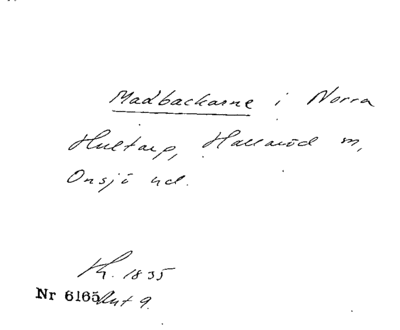 Madbackarne i Norra
Hultarp, Hallaröd sn,
Onsjö hd.
Kt. 1835
Nr 6165 Akt 9.